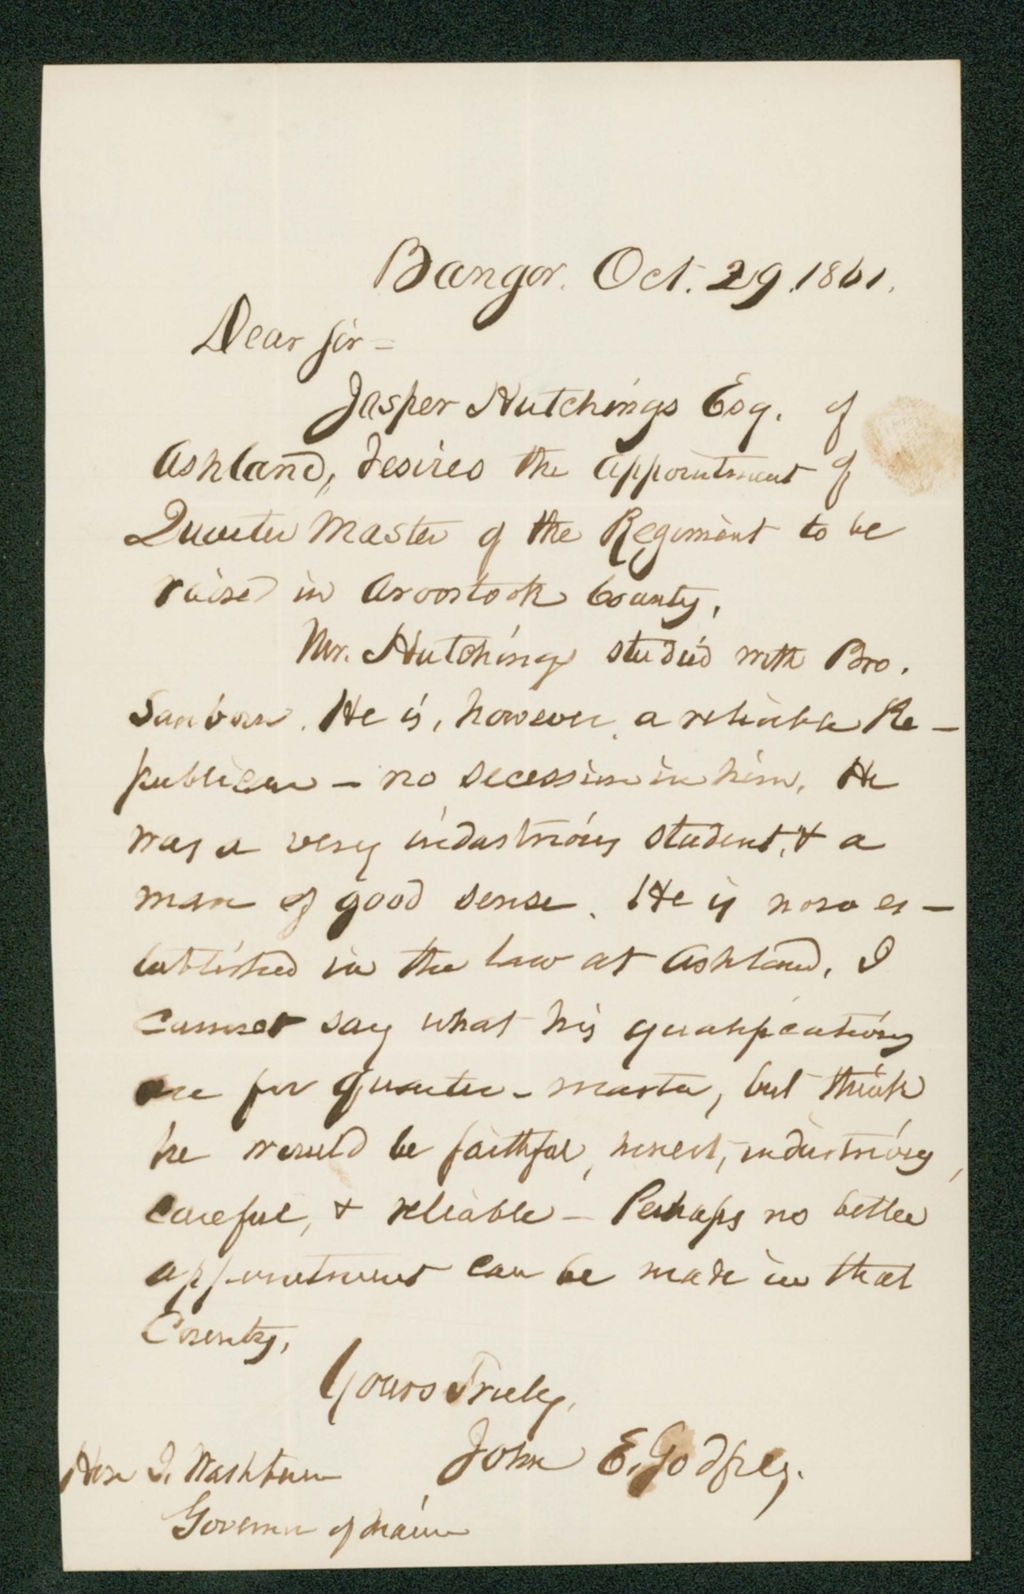 Bangor. Oct. 29. 1861.
Dear Sir =
Jasper Hutchings Esq. of
Ashland, desires the appointment of
Quarter Master of the Regiment to be
raised in Aroostook County.
Mr. Hutchings studied with Bro.
Sanborn. He is, however, a reliable Re-
publican - no secession in him. He
was a very industrious student, & a
man of good sense. He is now es-
tablished in the law at Ashland. I
cannot say what his qualifications
are for quarter-master, but think
he would be faithful, honest, industrious,
careful, & reliable - Perhaps no better
appointment can be made in that
County.
Yours Truly,
John E. Godfrey.
Hon I. Washburn
Governor of Maine